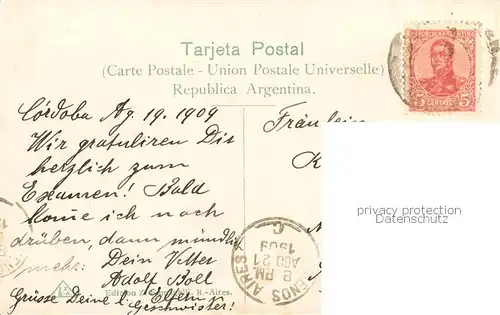 Tarjeta Postal
(Carte Postale - Union Postale Universelle)
Republica Argentina.
5 CENTAVOS 5
Córdoba Ag. 19. 1909
Wir gratuliren Dir
herzlich zum
Examen! Bald
kome ich nach
drüben, dann mündlich
mehr. Dein Vetter
Adolf Boll
Grüsse Deine l. Eltern
Geschwister!
Fräulein
K
privacy protection
Datenschutz
BUENOS AIRES
8 PM
AGO 21
1909
C
Edition Z. B.-Aires.